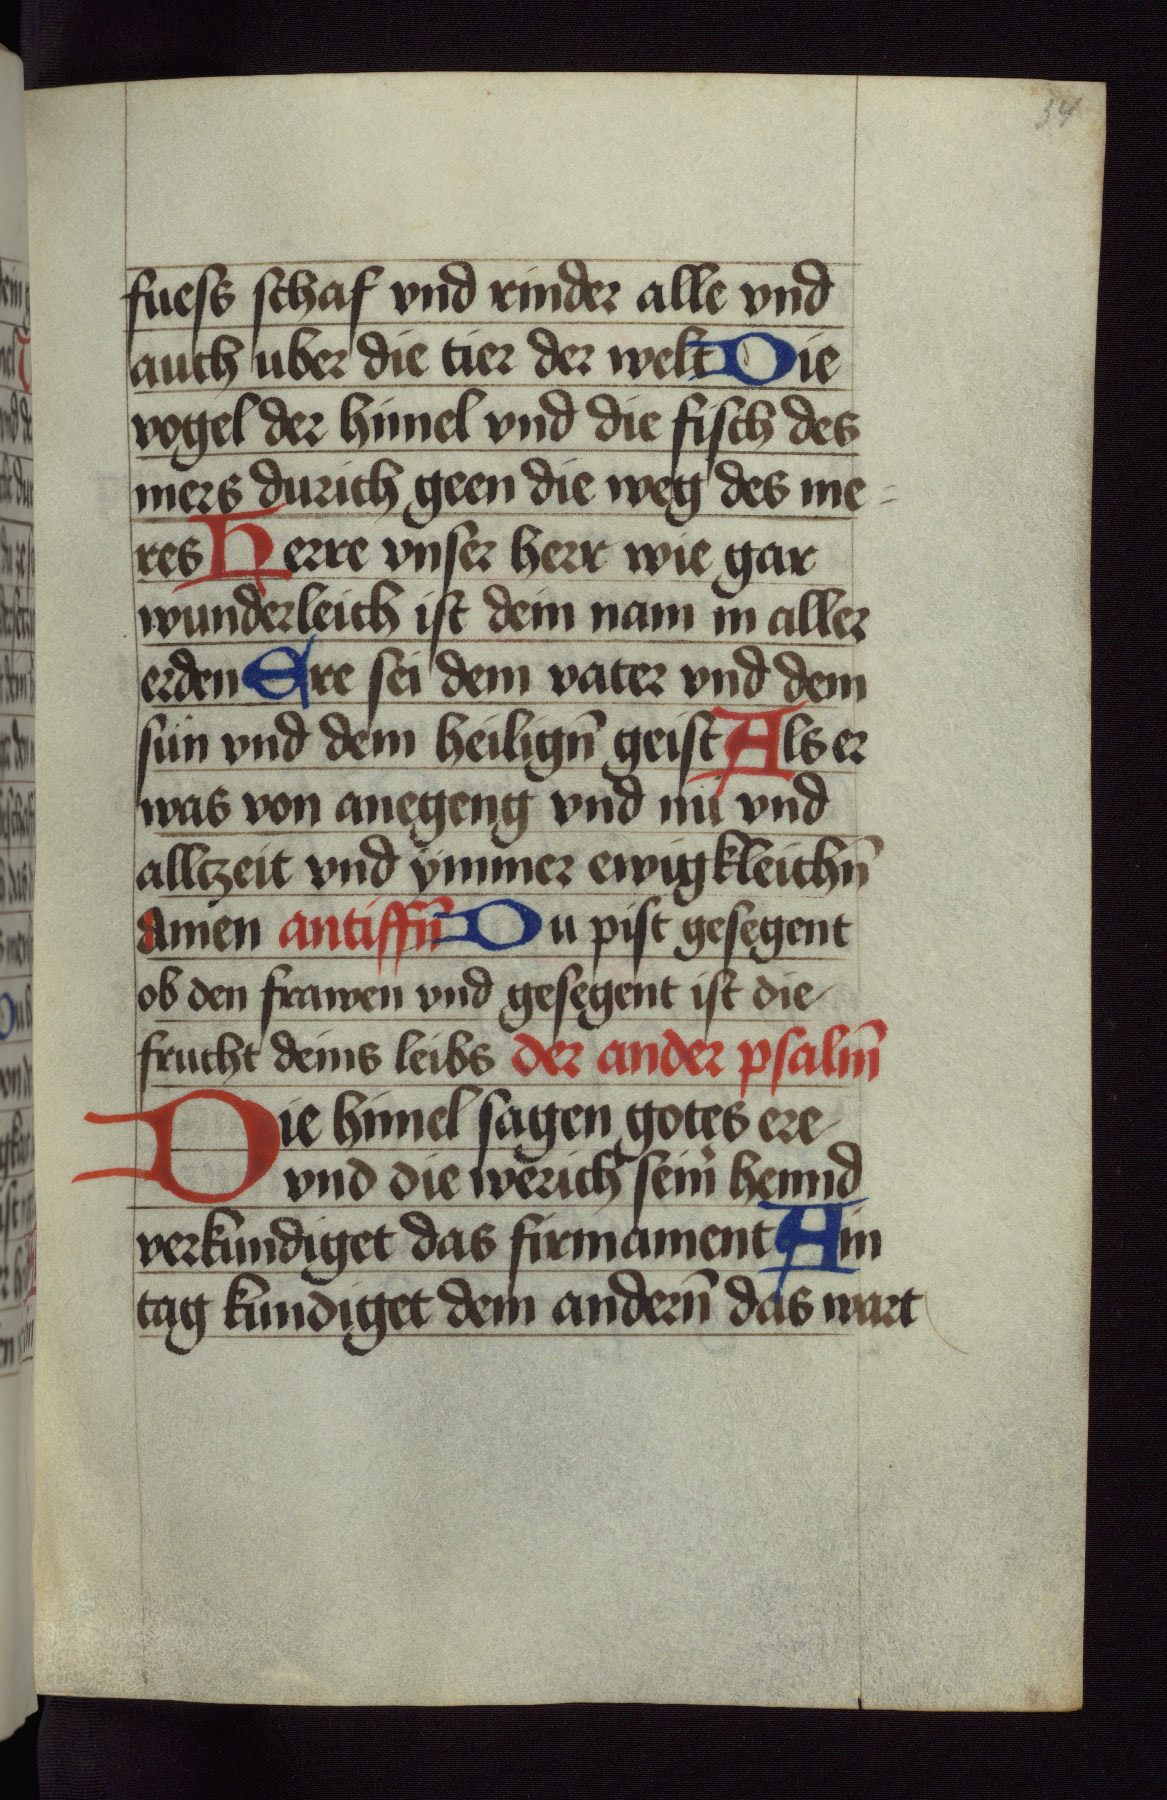 34
fuess schaf vnd rinder alle vnd
auch uber die tier der welt Die
vogel der himel vnd die fisch des
mers durich geen die weg des me-
res Herre vnser herr wie gar
wunderleich ist dein nam in aller
erden Ere sei dem vater vnd dem
sün vnd dem heilign̄ geist Als er
was von anegeng vnd nü vnd
allczeit vnd ymmer ewigkleichn̄
Amen antiffn̄ Du pist gesegent
ob den frawen vnd gesegent ist die
frucht deins leibs der ander psalm̄
Die himel sagen gotes ere
vnd die werich seinr hennd
verkundiget das firmament Ain
tag kundiget dem andern̄ das wart